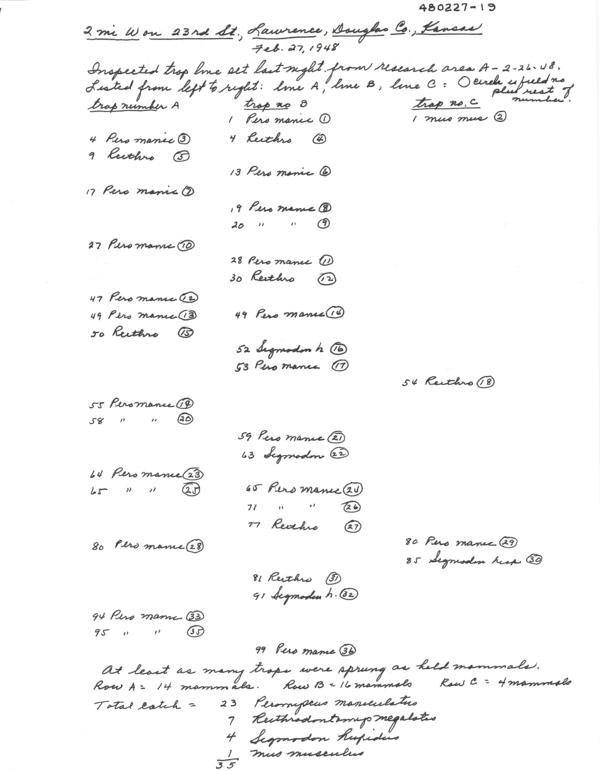 480227-19
2 mi W on 23rd St., Lawrence, Douglas Co., Kansas
Feb. 27, 1948
Inspected trap line set last night from research area A-2-26-48.
Listed from left to right: line A, line B, line C: O circle is field no
plus rest of number.
trap number A trap no B trap no. C
1 Pero manic 1 1 mus mus 2
4 Pero manic 3 4 Reithro 4
9 Reithro 5
13 Pero manic 6
17 Pero manic 7
19 Pero manic 8
20 " " 9
27 Pero manic 10
28 Pero manic 11
30 Reithro 12
47 Pero manic 12
49 Pero manic 13 49 Pero manic 14
50 Reithro 15
52 Sigmodon h 16
53 Pero manic 17
54 Reithro 18
55 Pero manic 19
58 " " 20
59 Pero manic 21
63 Sigmodon 22
64 Pero manic 23
65 " " 25 65 Pero manic 24
71 " " 26
77 Reithro 27
80 Pero manic 28 80 Pero manic 29
85 Sigmodon hisp 30
81 Reithro 31
91 Sigmodon h. 32
94 Pero manic 33
95 " " 35
99 Pero manic 36
At least as many traps were sprung as held mammals.
Row A = 14 mammals. Row B = 16 mammals Row C = 4 mammals
Total catch = 23 Peromyscus maniculatus
7 Reithrodontomys megalotis
4 Sigmodon hispidus
1 mus musculus
35